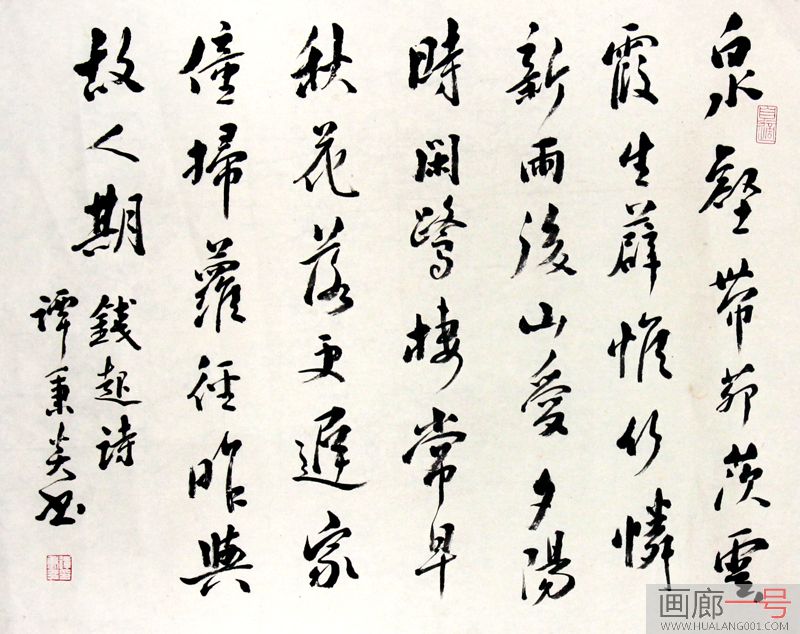 泉壑帶茆茨雲
霞生薜帷竹憐
新雨後山愛夕陽
時閑鷺棲常早
秋花落更遲家
僮掃蘿徑昨與
故人期
錢起詩
譚秉炎书
画廊一号
WWW.HUALANG001.COM